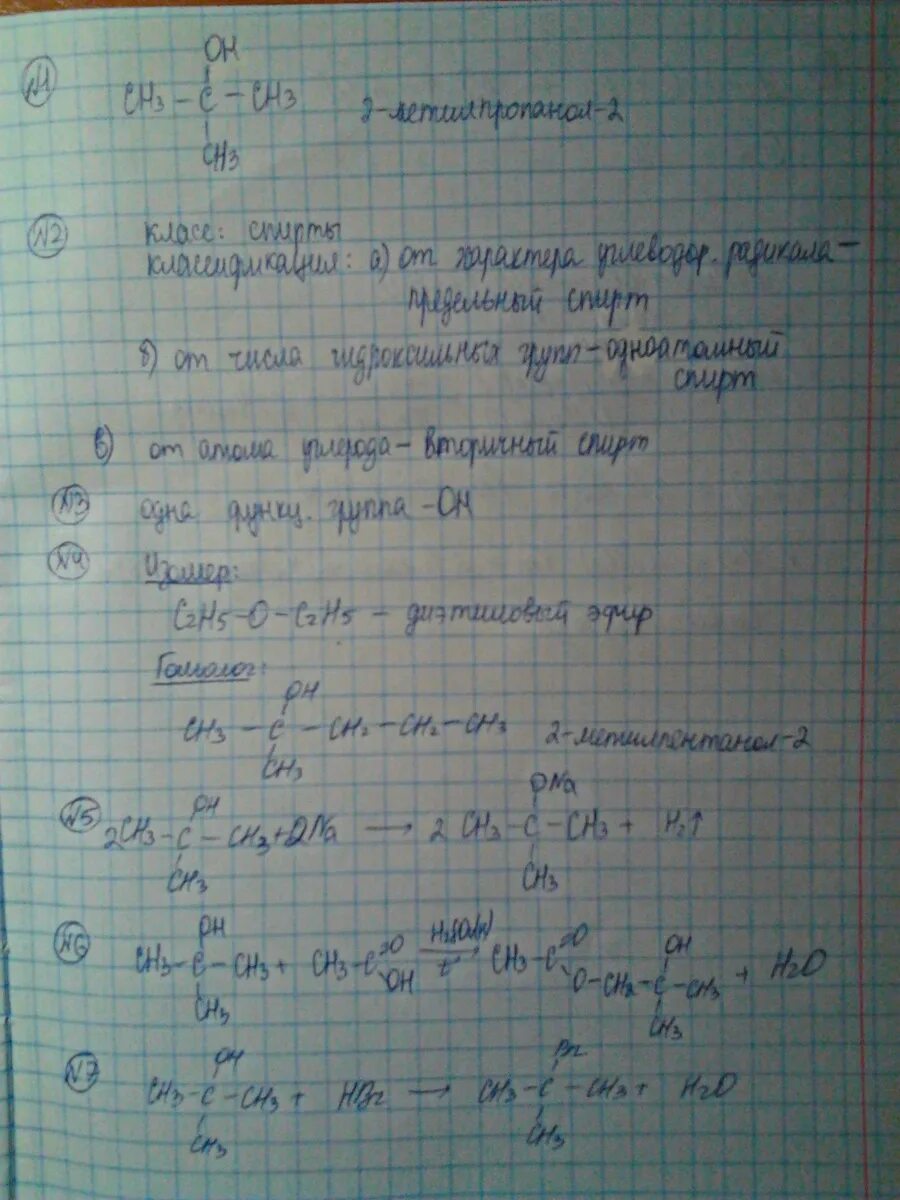 №1
OH
CH3 – C – CH3 2-метилпропанол-2
CH3
№2 класс: спирты
классификация: а) от характера углеводор. радикала –
предельный спирт
б) от числа гидроксильных групп – одноатомный
спирт
в) от атома углерода – вторичный спирт
№3 одна функц. группа –OH
№4 Изомер:
C2H5 – O – C2H5 – диэтиловый эфир
Гомолог:
OH
CH3 – C – CH2 – CH2 – CH3 2-метилпентанол-2
CH3
№5 OH ONa
2CH3 – C – CH3 + 2Na → 2 CH3 – C – CH3 + H2↑
CH3 CH3
№6 OH =O H2SO4(к) =O OH
CH3 – C – CH3 + CH3 – C → CH3 – C + H2O
CH3 OH t° O – CH2 – C – CH3
CH3
№7 OH Br
CH3 – C – CH3 + HBr → CH3 – C – CH3 + H2O
CH3 CH3